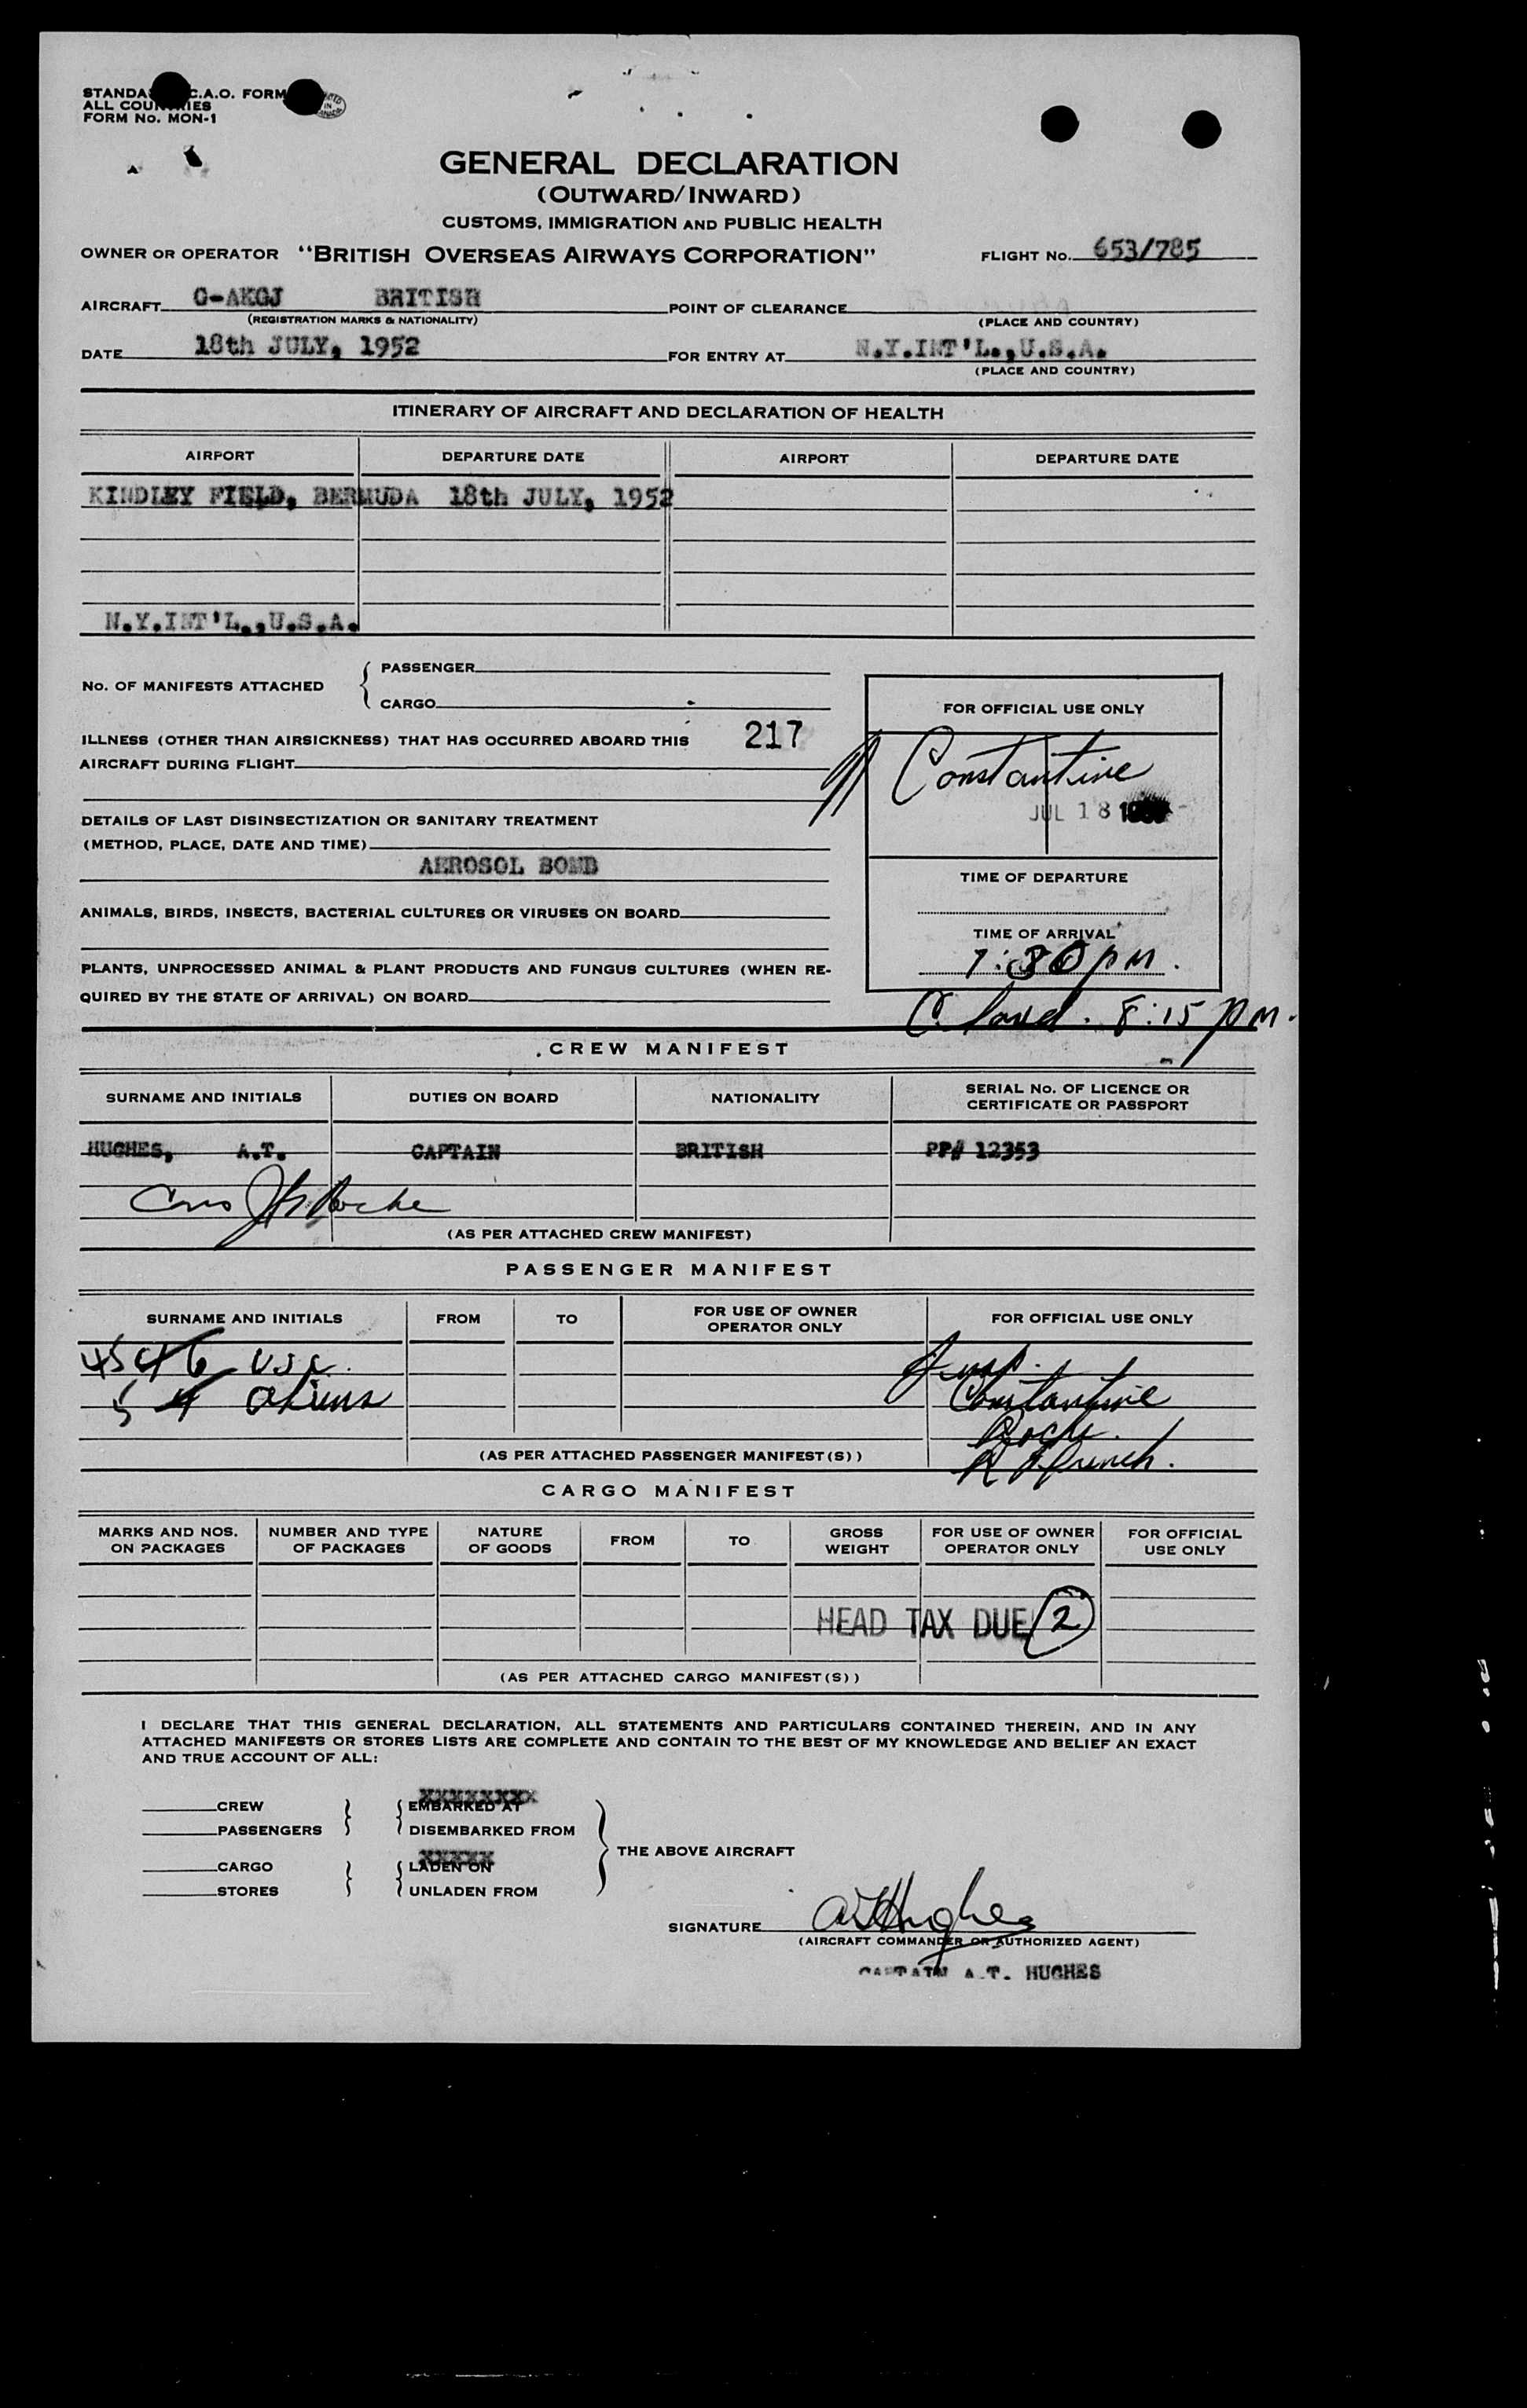 STANDA C.A.O. FORM
ALL COUNTRIES
FORM No. MON-1
GENERAL DECLARATION
(OUTWARD/INWARD)
CUSTOMS, IMMIGRATION AND PUBLIC HEALTH
OWNER OR OPERATOR "BRITISH OVERSEAS AIRWAYS CORPORATION" FLIGHT No. 653/785
AIRCRAFT G-AKGJ BRITISH POINT OF CLEARANCE
(REGISTRATION MARKS & NATIONALITY) (PLACE AND COUNTRY)
DATE 18th JULY, 1952 FOR ENTRY AT N.Y.INT'L.,U.S.A.
(PLACE AND COUNTRY)
ITINERARY OF AIRCRAFT AND DECLARATION OF HEALTH
AIRPORT DEPARTURE DATE AIRPORT DEPARTURE DATE
KINDLEY FIELD, BERMUDA 18th JULY, 1952
N.Y.INT'L.,U.S.A.
No. OF MANIFESTS ATTACHED { PASSENGER
CARGO
ILLNESS (OTHER THAN AIRSICKNESS) THAT HAS OCCURRED ABOARD THIS 217
AIRCRAFT DURING FLIGHT
DETAILS OF LAST DISINSECTIZATION OR SANITARY TREATMENT
(METHOD, PLACE, DATE AND TIME)
AEROSOL BOMB
ANIMALS, BIRDS, INSECTS, BACTERIAL CULTURES OR VIRUSES ON BOARD
PLANTS, UNPROCESSED ANIMAL & PLANT PRODUCTS AND FUNGUS CULTURES (WHEN RE-
QUIRED BY THE STATE OF ARRIVAL) ON BOARD
FOR OFFICIAL USE ONLY
Constantine
JUL 18
TIME OF DEPARTURE
TIME OF ARRIVAL
7:30 pm.
8:15 pm.
CREW MANIFEST
SURNAME AND INITIALS DUTIES ON BOARD NATIONALITY SERIAL No. OF LICENCE OR
CERTIFICATE OR PASSPORT
HUGHES, A.T. CAPTAIN BRITISH PP# 12353
Roche
(AS PER ATTACHED CREW MANIFEST)
PASSENGER MANIFEST
SURNAME AND INITIALS FROM TO FOR USE OF OWNER
OPERATOR ONLY FOR OFFICIAL USE ONLY
45 46 USC. Insp.
5 4 aliens Constantine
Roche.
(AS PER ATTACHED PASSENGER MANIFEST(S))
CARGO MANIFEST
MARKS AND NOS.
ON PACKAGES NUMBER AND TYPE
OF PACKAGES NATURE
OF GOODS FROM TO GROSS
WEIGHT FOR USE OF OWNER
OPERATOR ONLY FOR OFFICIAL
USE ONLY
HEAD TAX DUE 2
(AS PER ATTACHED CARGO MANIFEST(S))
I DECLARE THAT THIS GENERAL DECLARATION, ALL STATEMENTS AND PARTICULARS CONTAINED THEREIN, AND IN ANY
ATTACHED MANIFESTS OR STORES LISTS ARE COMPLETE AND CONTAIN TO THE BEST OF MY KNOWLEDGE AND BELIEF AN EXACT
AND TRUE ACCOUNT OF ALL:
XXXXXXXX
CREW EMBARKED AT
PASSENGERS DISEMBARKED FROM
THE ABOVE AIRCRAFT
XXXXX
CARGO LADEN ON
STORES UNLADEN FROM
SIGNATURE A T Hughes
(AIRCRAFT COMMANDER OR AUTHORIZED AGENT)
CAPTAIN A.T. HUGHES